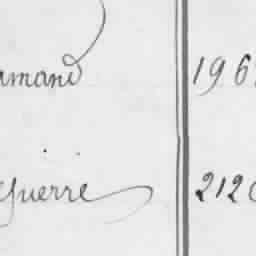 amand 196
guerre 212